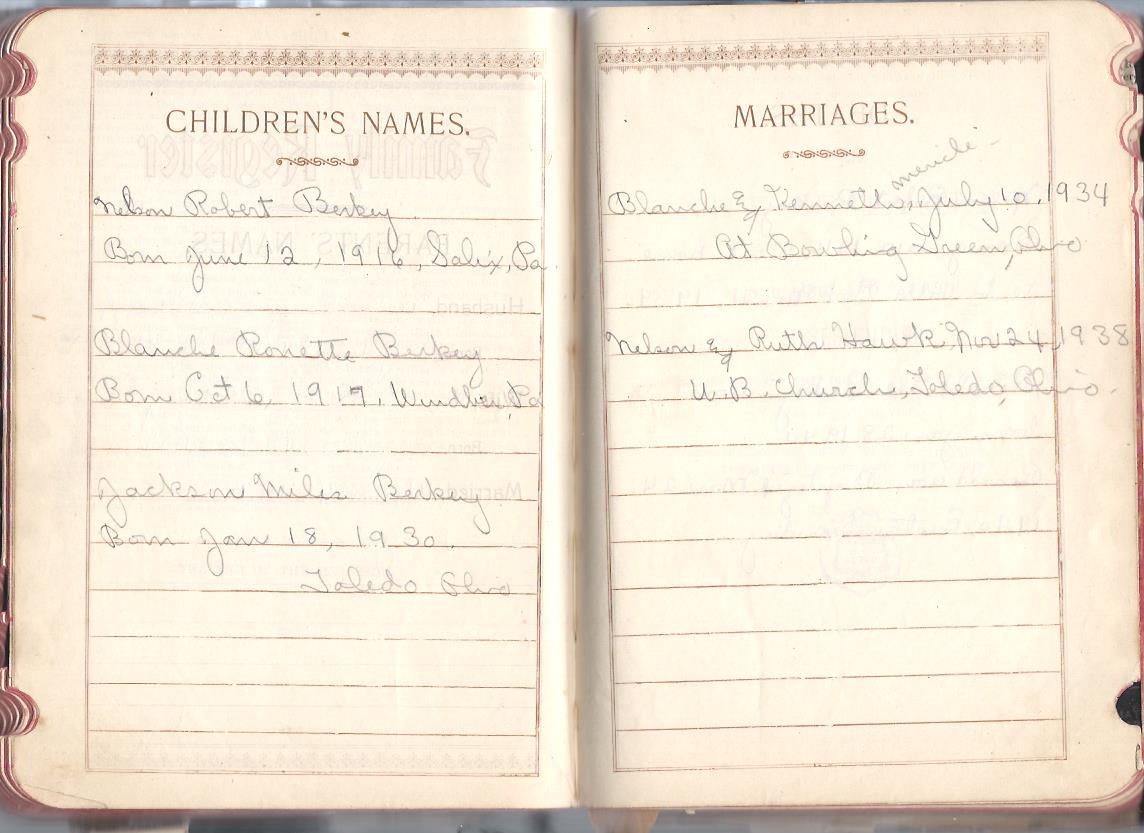 CHILDREN'S NAMES.
Nelson Robert Berkey
Born June 12, 1916, Salix, Pa.
Blanche Ronette Berkey
Born Oct 6, 1917, Windber, Pa
Jackson Miles Berkey
Born Jan 18, 1930.
Toledo Ohio
MARRIAGES.
Blanche & Kenneth Mericle, July 10, 1934
At Bowling Green, Ohio
Nelson & Ruth Hawk, Nov 24, 1938
U.B. Church, Toledo, Ohio.
Family Register
PARENTS' NAMES
Husband,
Born
Married